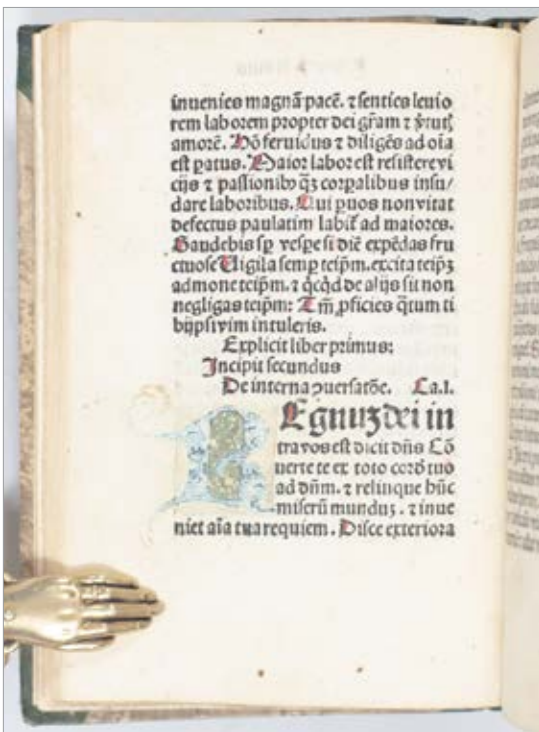 inuenies magnā pacē. ⁊ senties leuio
rem laborem propter dei grām ⁊ v̓tutꝭ
amorē. Hō feruidus ⁊ diligēs ad oīa
est patus. Maior labor est resistere vi
cijs ⁊ passionibꝰ qꝫ corpalibus insu/
dare laboribus. Qui puos non vitat
defectus paulatim labit̄ ad maiores.
Gaudebis sp vespe si diē expēdas fru
ctuose Uigila semp teipm. excita teipꝫ
admone teipm. ⁊ qͥcqͥd de alijs sit non
negligas teipm: Tm̄ pficies q̄tum ti
bijpsi vim intuleris.
Explicit liber primus:
Incipit secundus
De interna ꝯuersatōe. Ca.I.
REgnuꝫ dei in
tra vos est dicit dn̄s Cō
uerte te ex toto cordꝭ tuo
ad dn̄m. ⁊ relinque hūc
miserū munduꝫ. ⁊ inue
niet aīa tua requiem. Disce exteriora